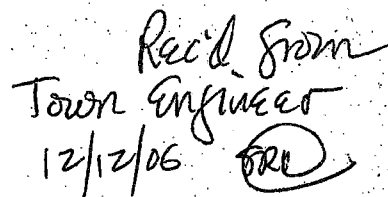 Rec'd from
Town Engineer
12/12/06